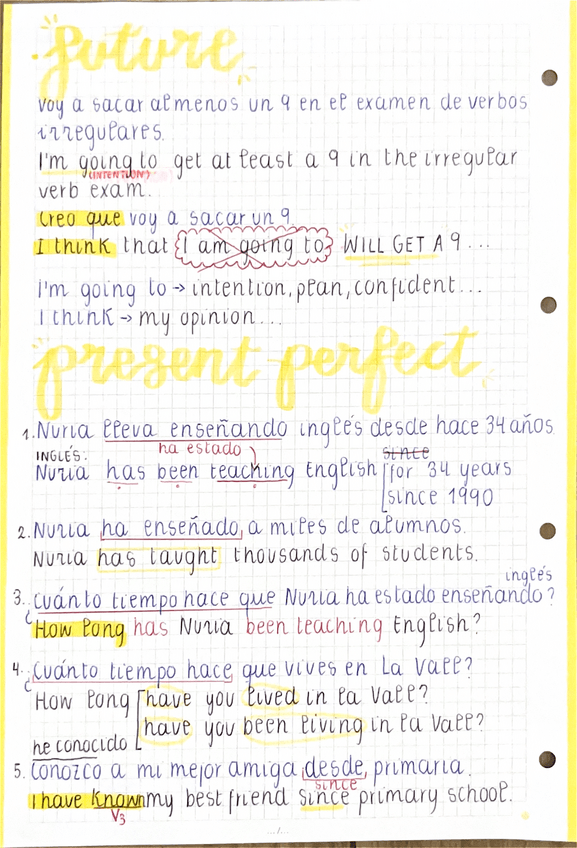 future
voy a sacar al menos un 9 en el examen de verbos
irregulares.
I'm going to get at least a 9 in the irregular
(INTENTION)
verb exam.
Creo que voy a sacar un 9
I think that I am going to WILL GET A 9...
I'm going to → intention, plan, confident...
I think → my opinion...
present perfect
1. Nuria lleva enseñando inglés desde hace 34 años.
INGLÉS: ha estado since
Nuria has been teaching English for 34 years
since 1990
2. Nuria ha enseñado a miles de alumnos.
Nuria has taught thousands of students.
inglés
3. ¿Cuánto tiempo hace que Nuria ha estado enseñando?
How long has Nuria been teaching English?
4. ¿Cuánto tiempo hace que vives en La Vall?
How long have you lived in la Vall?
have you been living in la Vall?
he conocido
5. Conozco a mi mejor amiga desde primaria.
since
I have known my best friend since primary school.
V3
.../...